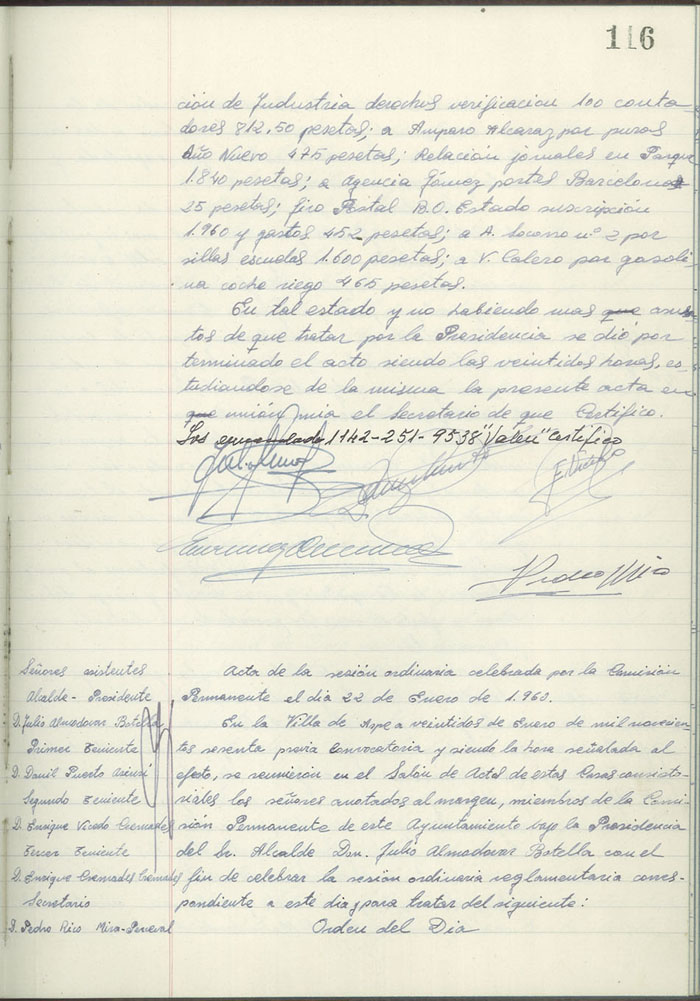 116
ción de Industria derechos verificacion 100 conta
dores 812,50 pesetas; a Amparo Alcaraz por puros
Año Nuevo 475 pesetas; Relación jornales en Parque
1.840 pesetas; a Agencia Gómez portes Barcelona
25 pesetas; Giro Postal B.O. Estado suscripción
1.960 y gastos 452 pesetas; a A. Socorro nº 2 por
sillas escuelas 1.600 pesetas; a V. Calero por gasoli
na coche riego 465 pesetas.
En tal estado y no habiendo mas que asun
tos de que tratar por la Presidencia se dió por
terminado el acto siendo las veintidos horas, es-
tudiandose de la misma la presente acta en
que unión mia el Secretario de que Certifico.
Los enmendado 1142-251-9538 "Valen" certifico
Pedro Rico
Señores asistentes
Alcalde-Presidente
D. Julio Almodovar Botella
Primer Teniente
D. David Puerto
Segundo Teniente
D. Enrique Vicedo Cremades
Tercer Teniente
D. Enrique Cremades Cremades
Secretario
D. Pedro Rico Mira-Perceval
Acta de la sesión ordinaria celebrada por la Comisión
Permanente el dia 22 de Enero de 1.960.
En la Villa de Aspe a veintidos de Enero de mil novecien
tos sesenta previa convocatoria y siendo la hora señalada al
efecto, se reunieron en el Salón de Actos de estas Casas consisto-
riales los señores anotados al margen, miembros de la Comi
sión Permanente de este Ayuntamiento bajo la Presidencia
del Sr. Alcalde Don. Julio Almodovar Botella con el
fin de celebrar la sesión ordinaria reglamentaria corres-
pondiente a este dia y para tratar del siguiente:
Orden del Dia